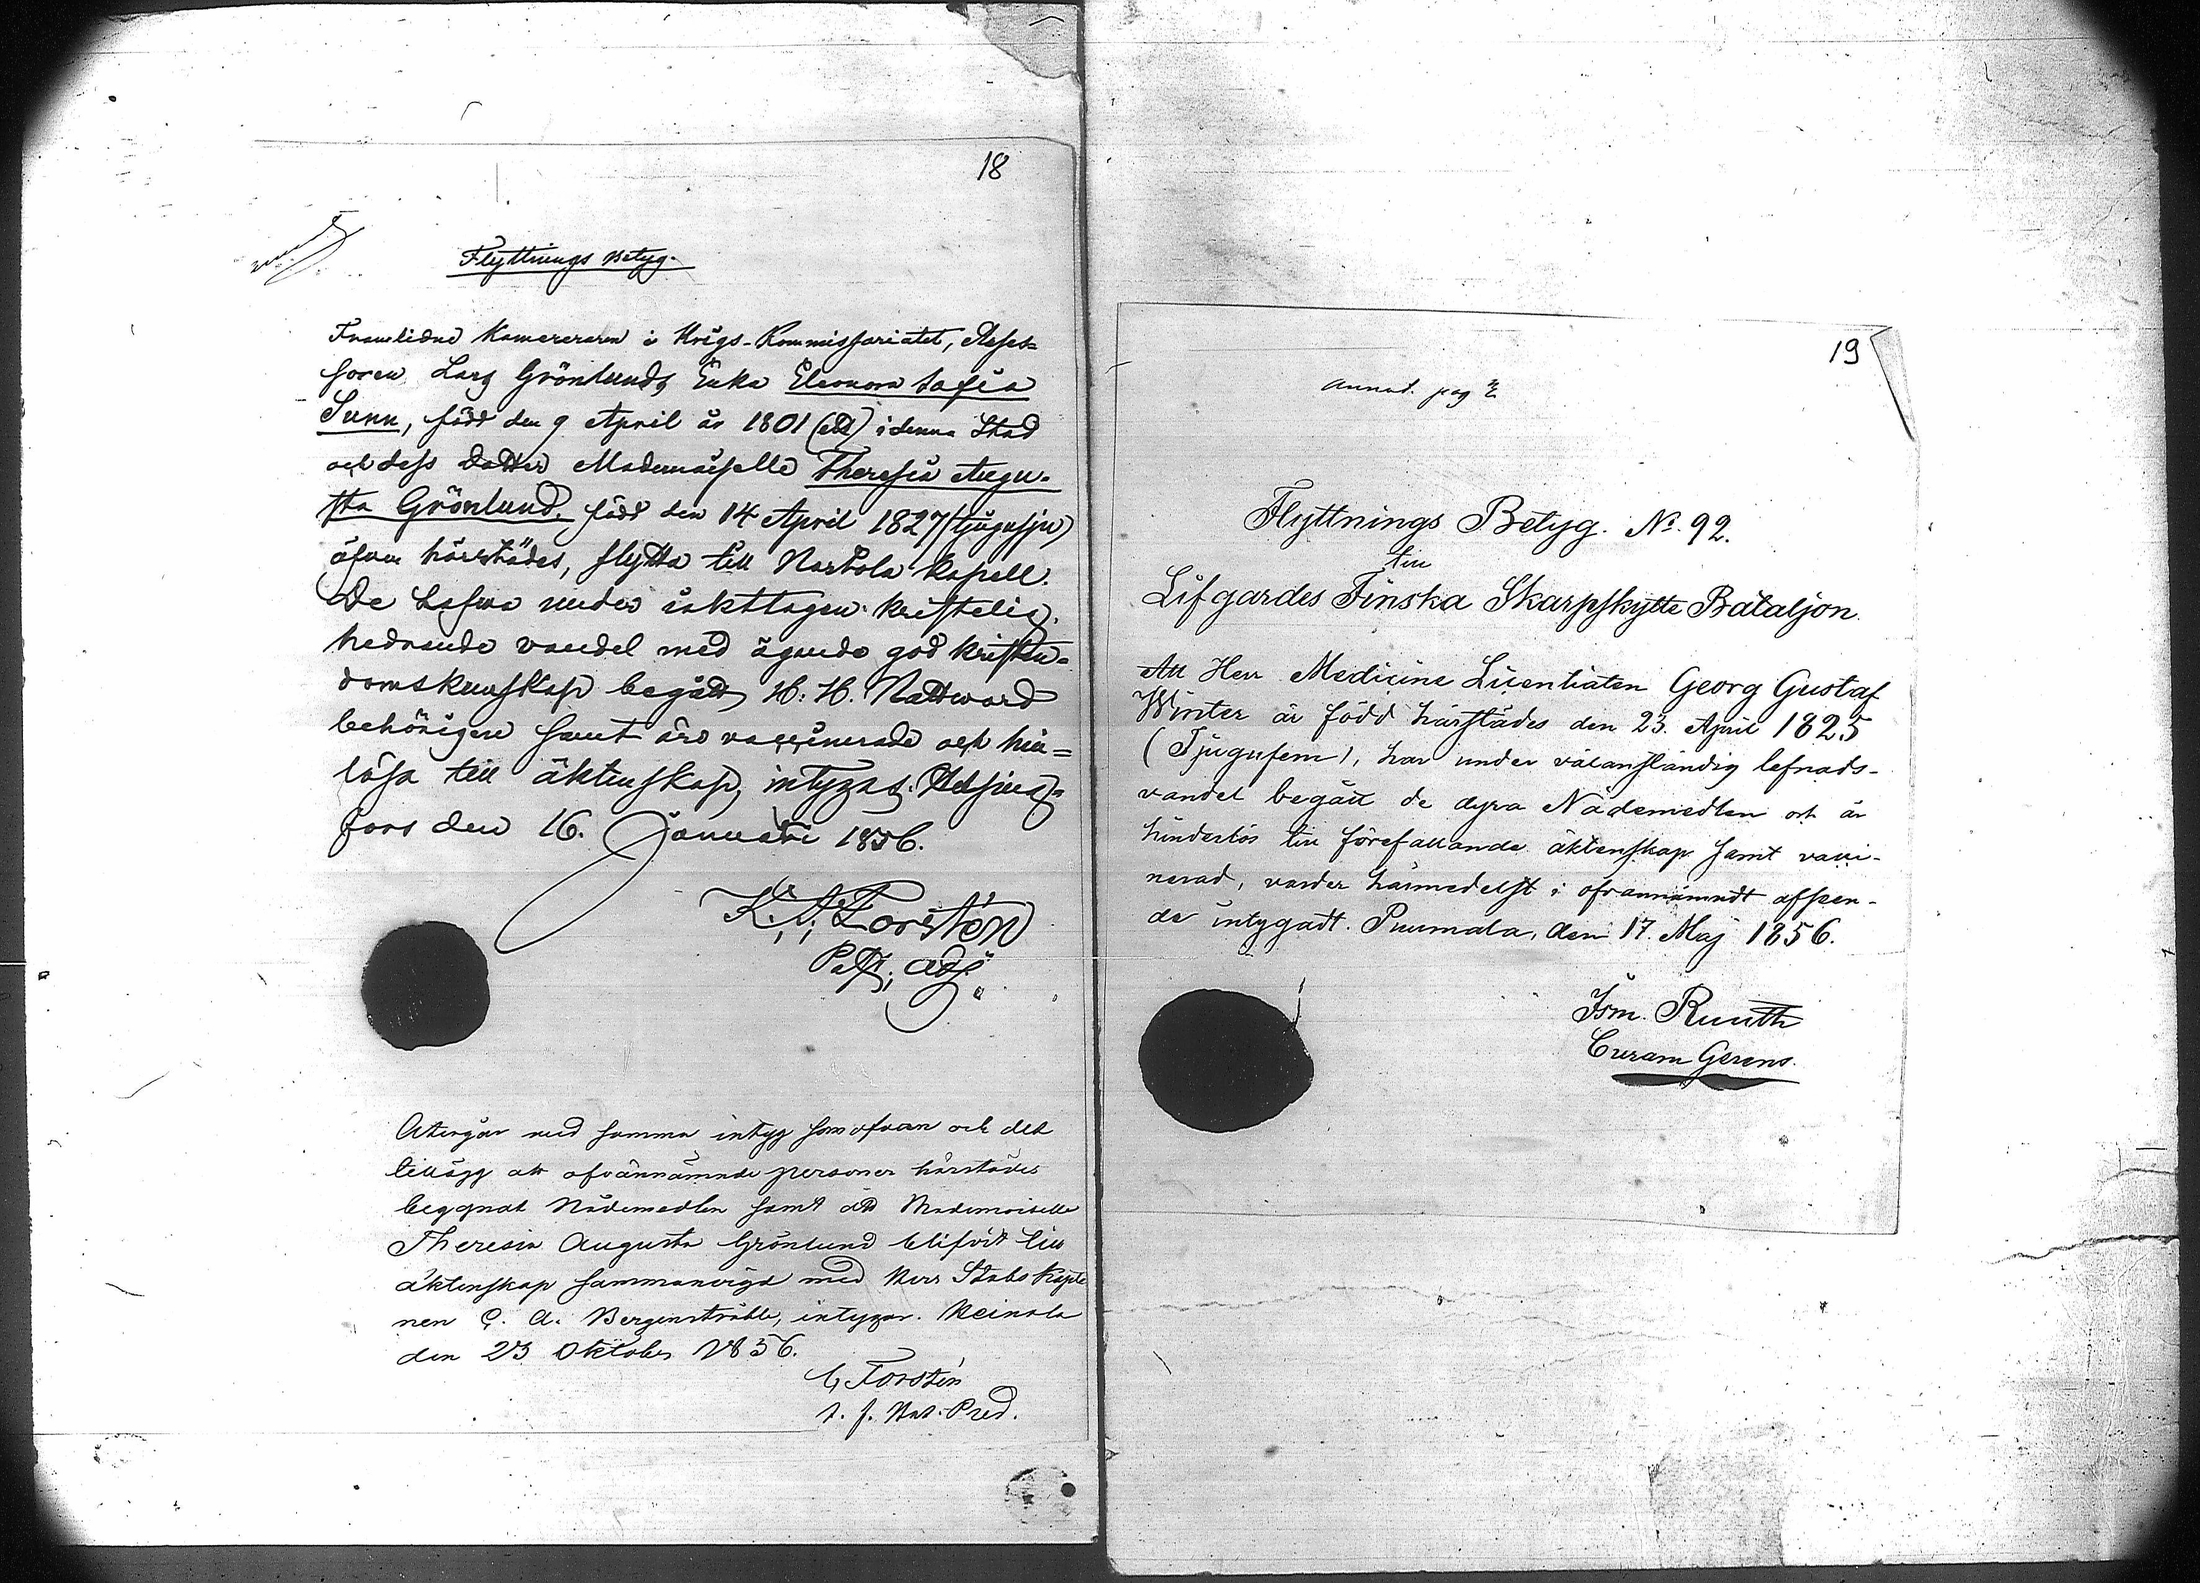 18
Flyttnings Betyg.
Framlidne Kamereraren i Krigs-Kommissariatet, Asses=
soren Lars Grönlunds Enka Eleonora Sofia
Sunn, född den 9 April år 1801 (ett) i denna Stad
och dess dotter Mademoiselle Theresia Augu-
sta Grönlund, född den 14 April 1827 (tjugusju)
äfven härstädes, flytta till Nastola Kapell.
De hafva under iakttagen kristelig,
hedrande vandel med ägande god kristen-
domskunskap begått H. H. Nattward
behörigen samt äro vaccinerade och hin=
lösa till äktenskap, intygas. Helsing-
fors den 16. Januari 1856.
K. J. Forstén
Past. Adj.
Återgår med samma intyg som ofvan och det
tillägg att ofvannämnde personer härstädes
begagnat Nådemedlen samt att Mademoiselle
Theresia Augusta Grönlund blifvit till
äktenskap sammanvigd med Herr Stabs Kapte
nen C. A. Bergenstråhle, intygar. Heinola
den 23 Oktober 1856.
C. Forstén
t. f. Pred.
19
annot. pag
Flyttnings Betyg. No. 92.
till
Lifgardes Finska Skarpskytte Bataljon.
Att Herr Medicine Licentiaten Georg Gustaf
Winter är född härstädes den 23. April 1825
(Tjugufem), har under välanständig lefnads-
vandel begått de dyra Nådemedlen och är
hinderlös till förefallande äktenskap samt vacci-
nerad, varder härmedelst i ofvannämndt afseen-
de intygadt. Puumala, den 17. Maj 1856.
Ism. Ruuth
Curam Gerens.